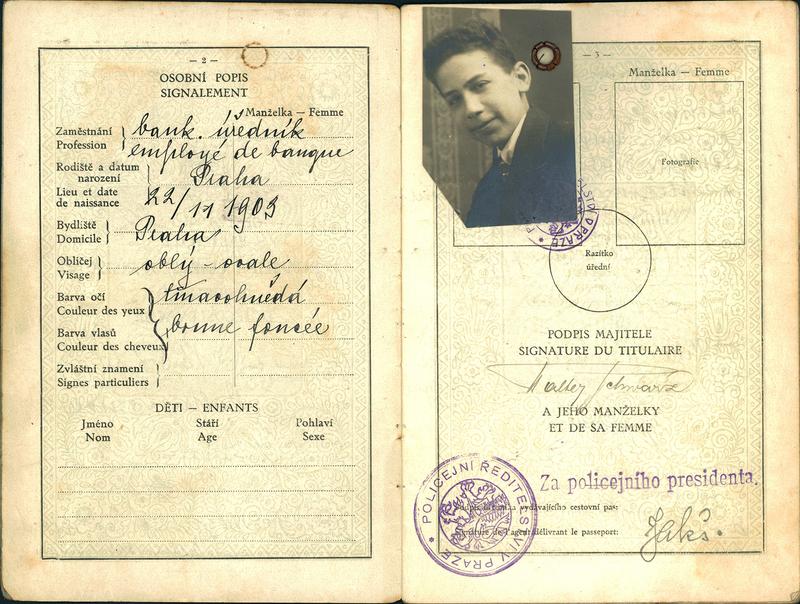 — 2 —
OSOBNÍ POPIS
SIGNALEMENT
Manželka — Femme
Zaměstnání
Profession
bank. úředník
employé de banque
Rodiště a datum
narození
Lieu et date
de naissance
Praha
22/11 1903
Bydliště
Domicile
Praha
Obličej
Visage
oblý - ovale
Barva očí
Couleur des yeux
tmavohnědá
Barva vlasů
Couleur des cheveux
brune foncée
Zvláštní znamení
Signes particuliers
DĚTI — ENFANTS
Jméno Stáří Pohlaví
Nom Age Sexe
— 3 —
Manželka — Femme
Fotografie
V PRAZE
Razítko
úřední
PODPIS MAJITELE
SIGNATURE DU TITULAIRE
Walter Schwarz
A JEHO MANŽELKY
ET DE SA FEMME
POLICEJNÍ ŘEDITELSTVÍ V PRAZE
Za policejního presidenta.
vydávajícího cestovní pas:
délivrant le passeport: